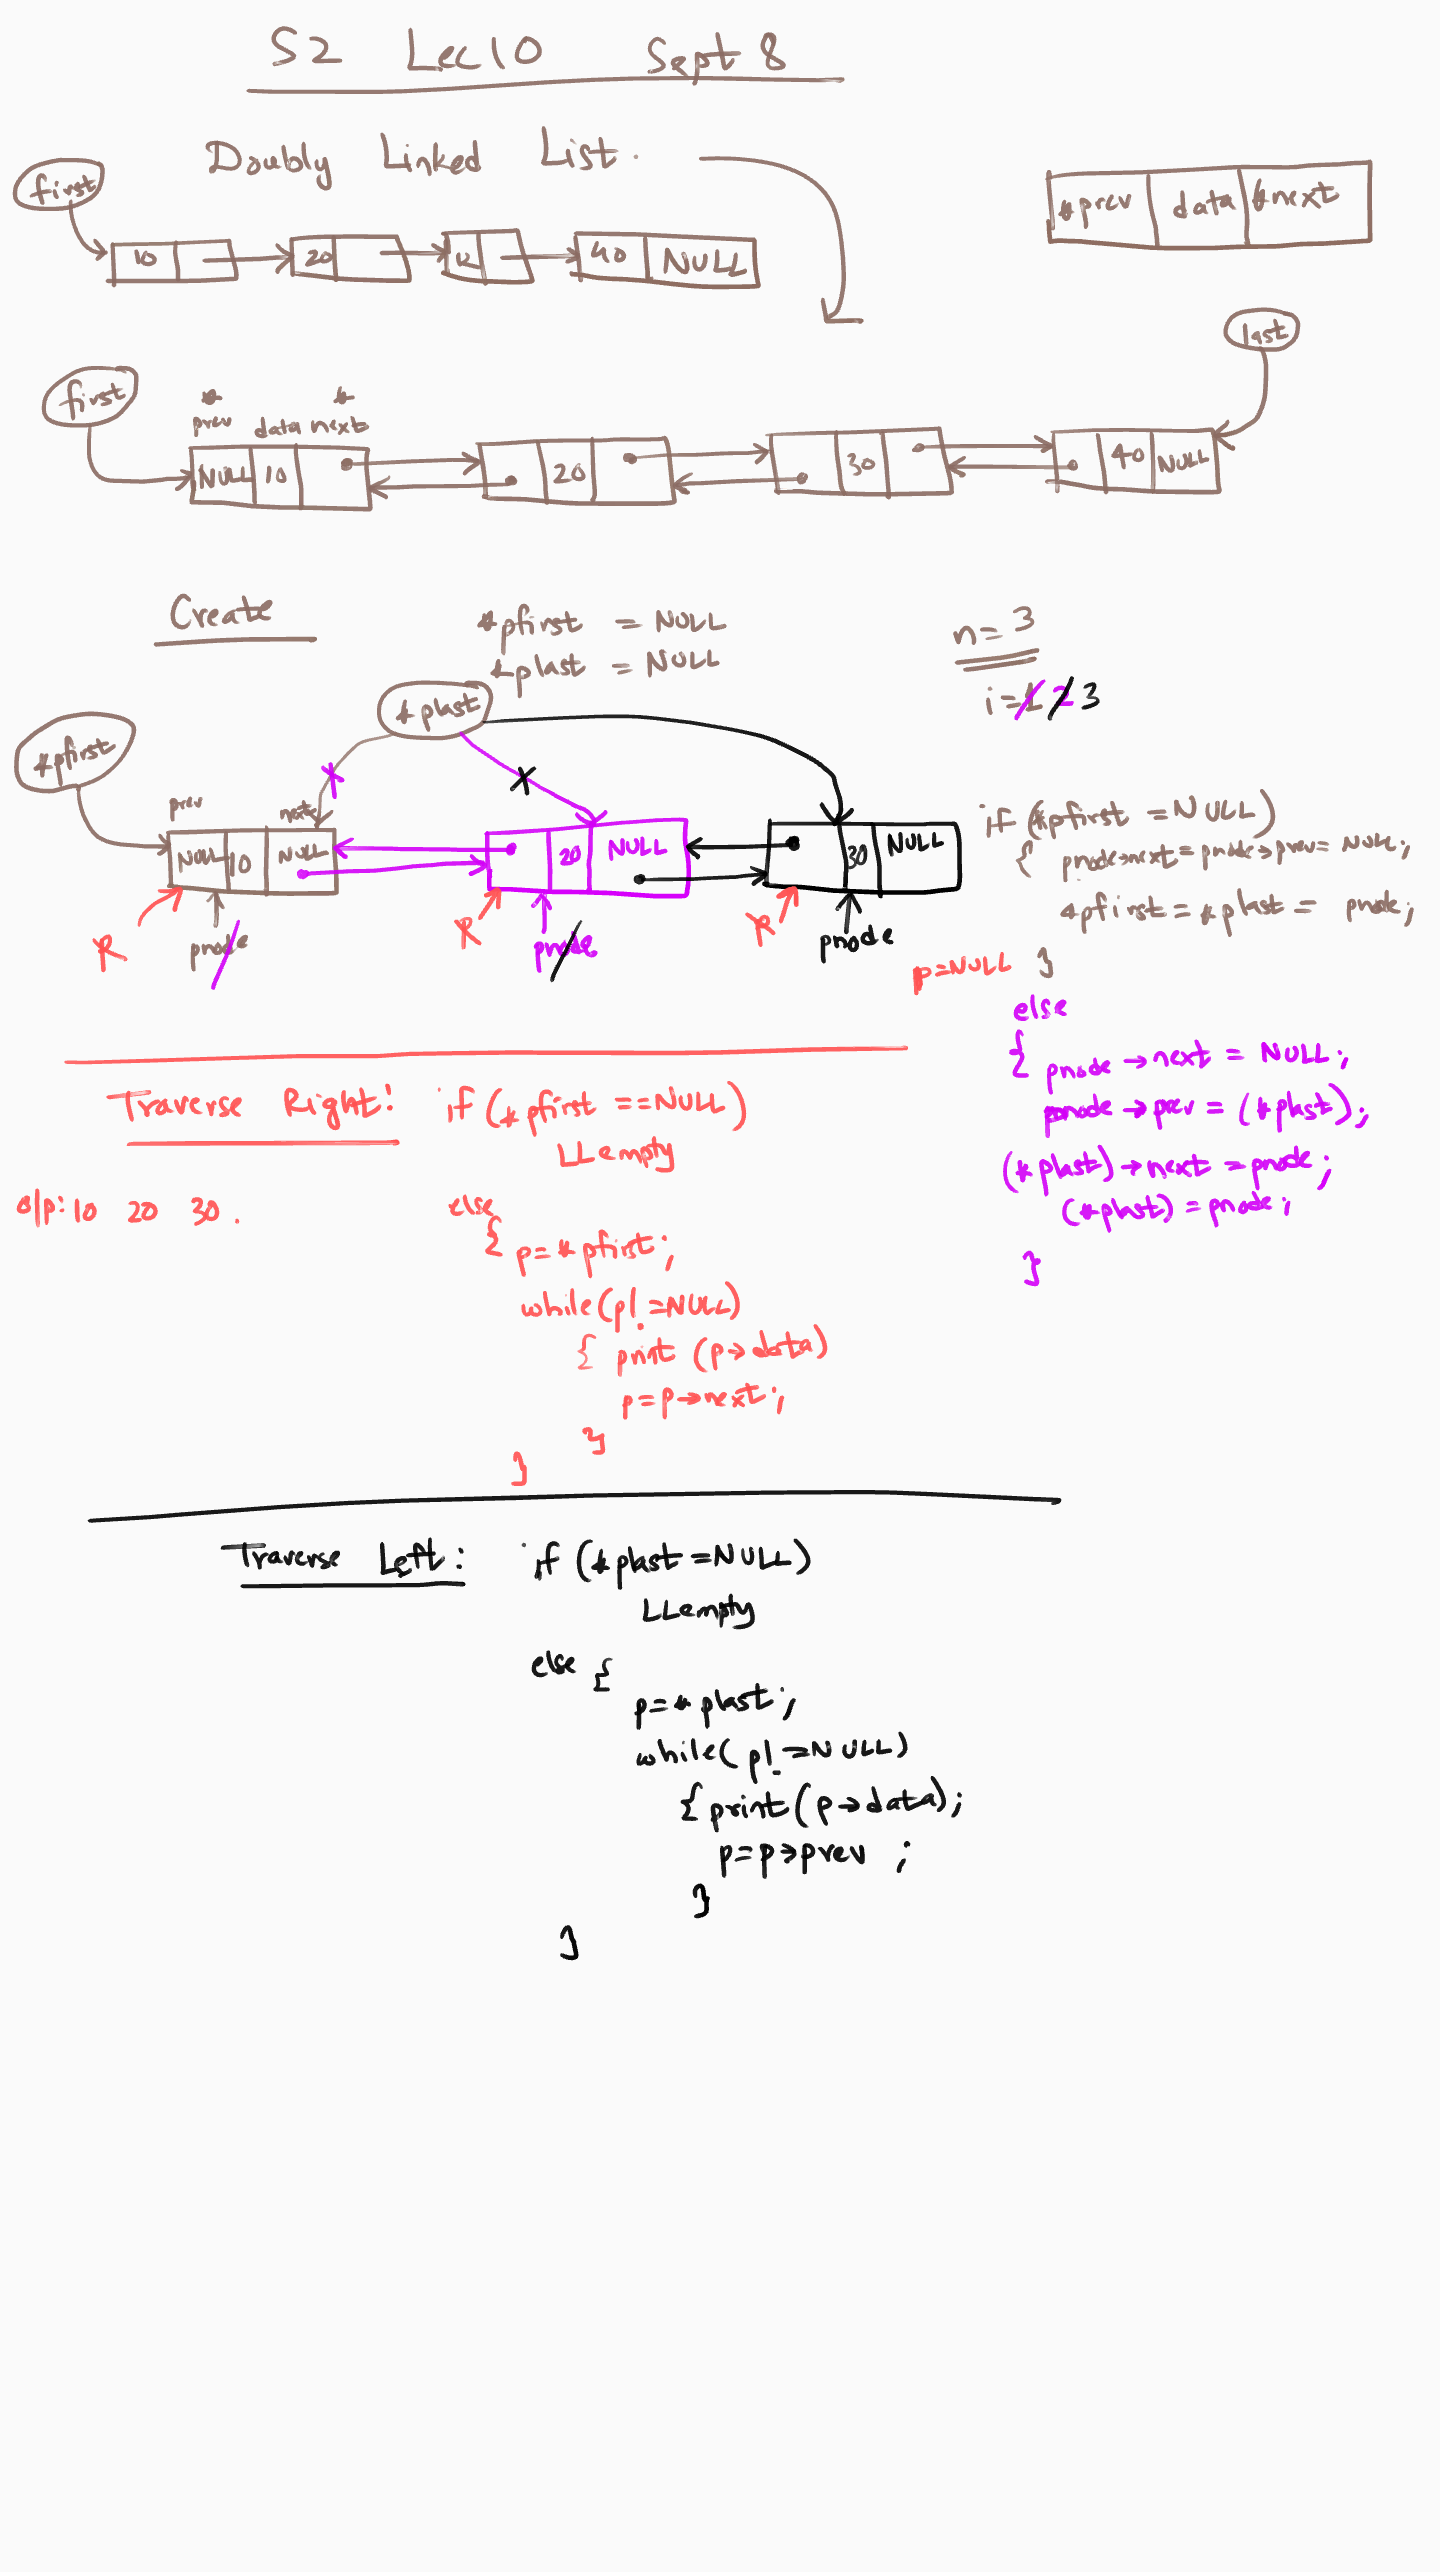 S2 Lec 10 Sept 8
Doubly Linked List.
first
*prev data *next
10 20 40 NULL
last
first
* *
prev data next
NULL 10 20 30 40 NULL
Create
*pfirst = NULL
*plast = NULL
n = 3
i = 1 2 3
*plast
*pfirst
prev next
NULL 10 NULL 20 NULL 30 NULL
pnode pnode pnode
if (*pfirst = NULL)
{ pnode→next = pnode→prev = NULL;
*pfirst = *plast = pnode;
}
p=NULL
else
{ pnode → next = NULL;
pnode → prev = (*plast);
(*plast) → next = pnode;
(*plast) = pnode;
}
Traverse Right: if (*pfirst == NULL)
LL empty
o/p: 10 20 30.
else
{ p = *pfirst;
while (p! = NULL)
{ print (p→data)
p = p→next;
}
}
Traverse Left: if (*plast = NULL)
LL empty
else {
p = *plast;
while (p! = NULL)
{ print (p→data);
p = p→prev ;
}
}